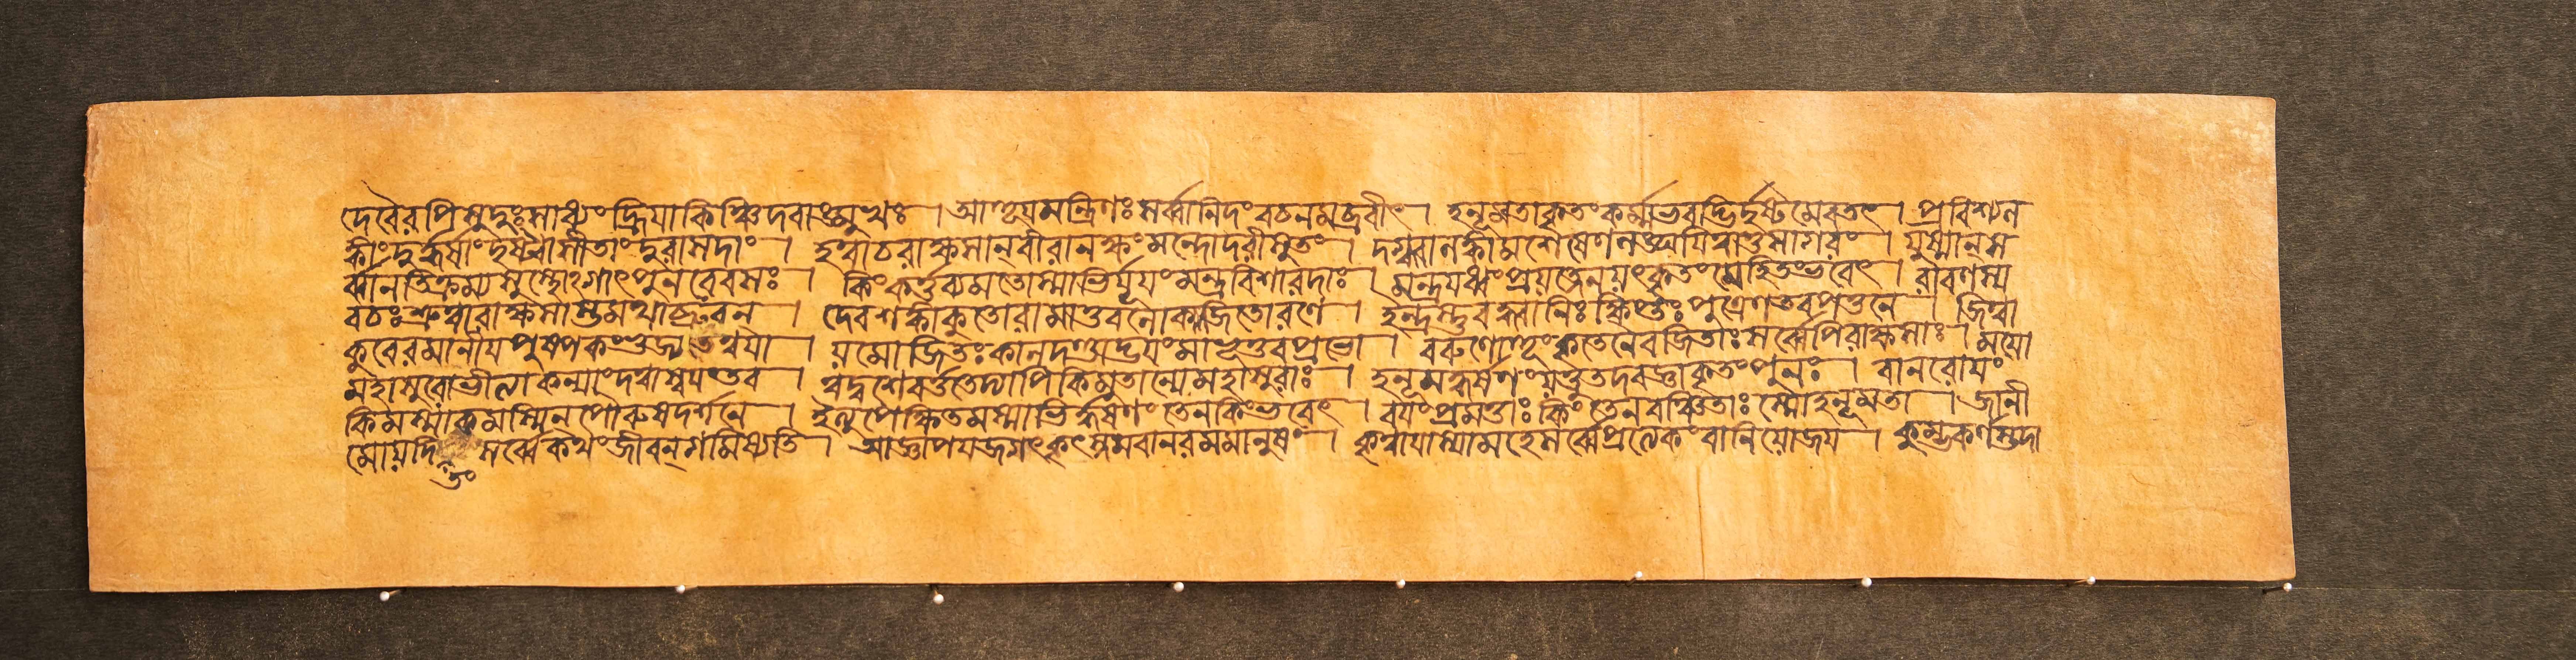 দেবৈরপিসুদুঃসাধ্যংহ্রিয়াকিঞ্চিদবাঙ্মুখঃ । আহূয়মন্ত্রিণঃসর্ব্বানিদংবচনমব্রবীৎ । হনূমতাকৃতংকর্ম্মভবদ্ভির্দৃষ্টমেবতৎ । প্রবিশ্যল
ঙ্কাংদুর্দ্ধর্ষাংদৃষ্ট্বাসীতাংদুরাসদাং । হত্বাচরাক্ষসান্বীরানক্ষংমন্দোদরীসুতং । দগ্ধ্বালঙ্কামশেষেণলঙ্ঘয়িত্বাতুসাগরং । যুষ্মান্স
র্ব্বানতিক্রম্যসুস্থোংগাৎপুনরেবসঃ । কিংকর্ত্তব্যমতোস্মাভির্যূয়ংমন্ত্রবিশারদাঃ । মন্ত্রয়ধ্বংপ্রয়ত্নেনয়ৎকৃতংমেহিতংভবেৎ । রাবণস্য
বচঃশ্রুত্বারাক্ষসাস্তমথাব্রুবন । দেবশঙ্কাকুতোরামাত্তবলোকজিতোরণে । ইন্দ্রস্তুবদ্ধ্বানিঃক্ষিপ্তঃপুত্রেণতবপত্তনে । জিত্বা
কুবেরমানীয়পুষ্পকংভুজ্যতেত্বয়া । য়মোজিতঃকালদণ্ডাদ্ভয়ংনাভূত্তবপ্রভো । বরুণোহূংকৃতেনৈবজিতাঃসর্ব্বেপিরাক্ষসাঃ । ময়ো
মহাসুরোভীত্যাকন্যাংদত্বাস্বয়ংতব । ত্বদ্বশেবর্ত্ততেদ্যাপিকিমুতান্যেমহাসুরাঃ । হনূমদ্ধর্ষণংয়ত্তুতদবজ্ঞাকৃতংপুনঃ । বানরোয়ং
কিমস্মাকমস্মিনপৌরুষদর্শনে । ইত্যুপেক্ষিতমস্মাভির্দ্ধর্ষণংতেনকিংভবেৎ । বয়ংপ্রমত্তাঃকিংতেনবঞ্চিতাঃস্মোহনূমতা । জানী
মোয়দি তং সর্ব্বেকথংজীবন্গমিষ্যতি । আজ্ঞাপয়জগৎকৃৎস্নমবানরমমানুষং । কৃত্বায়াস্যামহেসর্ব্বেপ্রত্যেকংবানিয়োজয় । কুম্ভকর্ণস্তদা